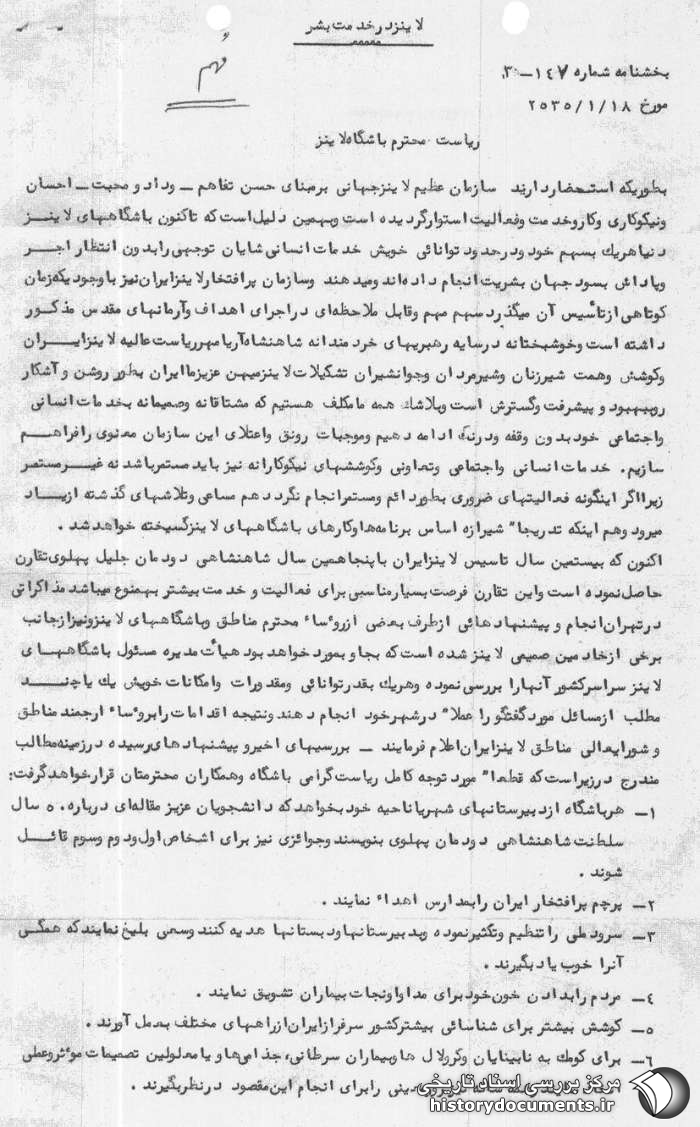 لاینزدرخدمت‌بشر
مُهم
بخشنامه شماره ۱۴۷-۳۰
مورخ ۲۵۳۵/۱/۱۸
ریاست محترم باشگاه‌لاینز
بطوریکه استحضاردارند سازمان عظیم لاینزجهانی برمبنای حسن تفاهم - وداد و محبت - احسان
ونیکوکاری وکاروخدمت وفعالیت استوارگردیده است وبهمین دلیل‌است که تاکنون باشگاههای لاینز
دنیاهریك بسهم خود ودرحدود توانائی خویش خدمات انسانی شایان توجهی رابدون انتظار اجر
وپاداش بسودجهان بشریت انجام داده‌اند ومیدهند وسازمان پرافتخارلاینزایران‌نیز باوجودیکه‌زمان
کوتاهی ازتأسیس آن میگذردسهم مهم وقابل ملاحظه‌ای دراجرای اهداف وآرمانهای مقدس مذکور
داشته است وخوشبختانه درسایه رهبریهای خردمندانه شاهنشاه‌آریامهرریاست عالیه لاینزایران
وکوشش وهمت شیرزنان وشیرمردان وجوانشیران تشکیلات لاینزمیهن عزیزماایران بطور روشن و آشکار
روببهبود و پیشرفت وگسترش است وبلاشك همه مامکلف هستیم که مشتاقانه وصمیمانه بخدمات‌انسانی
واجتماعی خودبدون وقفه ودرنگ ادامه دهیم وموجبات رونق واعتلای این سازمان معنوی رافراهم
سازیم. خدمات انسانی واجتماعی وتعاونی وکوششهای نیکوکارانه نیز باید مستمرباشد نه غیرمستمر
زیرااگر اینگونه فعالیتهای ضروری بطوردائم ومستمرانجام نگردد هم مساعی وتلاشهای گذشته ازیاد
میرود وهم اینکه تدریجا" شیرازه اساس برنامه‌هاوکارهای باشگاههای لاینزگسیخته خواهدشد.
اکنون که بیستمین سال تاسیس لاینزایران باپنجاهمین سال شاهنشاهی دودمان جلیل پهلوی‌تقارن
حاصل‌نموده است واین تقارن فرصت بسیارمناسبی برای فعالیت و خدمت بیشتر بهمنوع میباشد مذاکراتی
درتهران‌انجام و پیشنهادهائی ازطرف بعضی ازروساء محترم مناطق وباشگاههای لاینزونیزازجانب
برخی ازخادمین صمیمی لاینز شده است‌که بجا وبمورد خواهد بود هیأت مدیره مسئول باشگاههای
لاینز سراسرکشور آنهارا بررسی‌نموده وهریك بقدرتوانائی ومقدورات وامکانات خویش یك یاچند
مطلب ازمسائل موردگفتگو را عملا" درشهرخود انجام دهند ونتیجه اقدامات رابروساء ارجمند مناطق
و شورایعالی مناطق لاینزایران‌اعلام فرمایند - بررسیهای اخیرو پیشنهادهای‌رسیده درزمینه‌مطالب
مندرج درزیراست که قطعا" مورد توجه کامل ریاست‌گرامی باشگاه وهمکاران محترمتان قرارخواهدگرفت:
۱- هرباشگاه ازدبیرستانهای شهریاناحیه خودبخواهدکه دانشجویان عزیز مقاله‌ای درباره ۵۰ سال
سلطنت شاهنشاهی دودمان پهلوی بنویسند وجوائزی نیز برای اشخاص اول‌ودوم وسوم قائل
شوند.
۲- پرچم پرافتخار ایران رابمدارس اهداء نمایند.
۳- سرودملی راتنظیم وتکثیرنموده وبدبیرستانهاودبستانها هدیه کنند وسعی بلیغ نمایندکه همگی
آنرا خوب یادبگیرند.
۴- مردم رابدادن خون‌خودبرای مداواونجات بیماران تشویق نمایند.
۵- کوشش بیشتر برای شناسائی بیشترکشور سرفرازایران‌ازراههای مختلف بعمل آورند.
۶- برای کومك به نابینایان وکرولال هاوبیماران سرطانی، جذامی‌ها ویامعلولین تصمیمات موثروعملی
رابرای انجام این‌مقصود درنظربگیرند.
مرکز بررسی اسناد تاریخی
historydocuments.ir